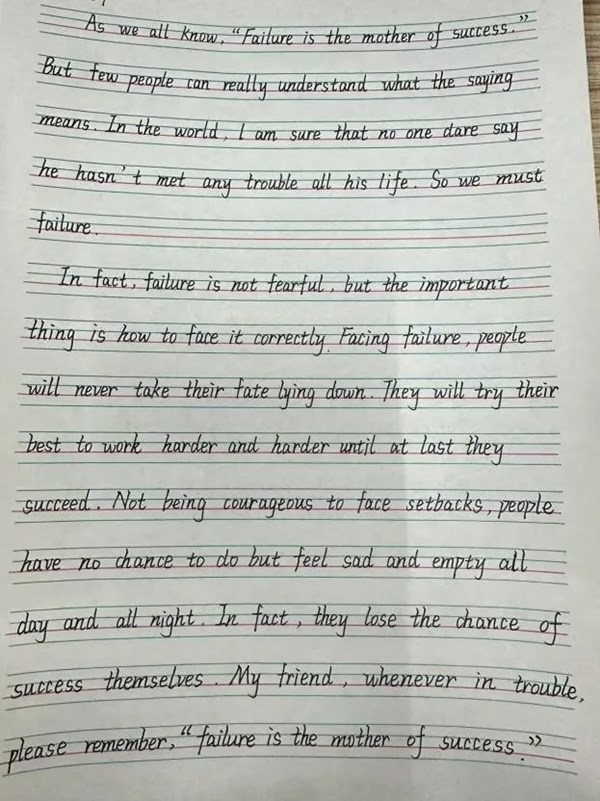 As we all know, "Failure is the mother of success."
But few people can really understand what the saying
means. In the world, I am sure that no one dare say
he hasn't met any trouble all his life. So we must
failure.
In fact, failure is not fearful, but the important
thing is how to face it correctly. Facing failure, people
will never take their fate lying down. They will try their
best to work harder and harder until at last they
succeed. Not being courageous to face setbacks, people
have no chance to do but feel sad and empty all
day and all night. In fact, they lose the chance of
success themselves. My friend, whenever in trouble,
please remember, "failure is the mother of success."